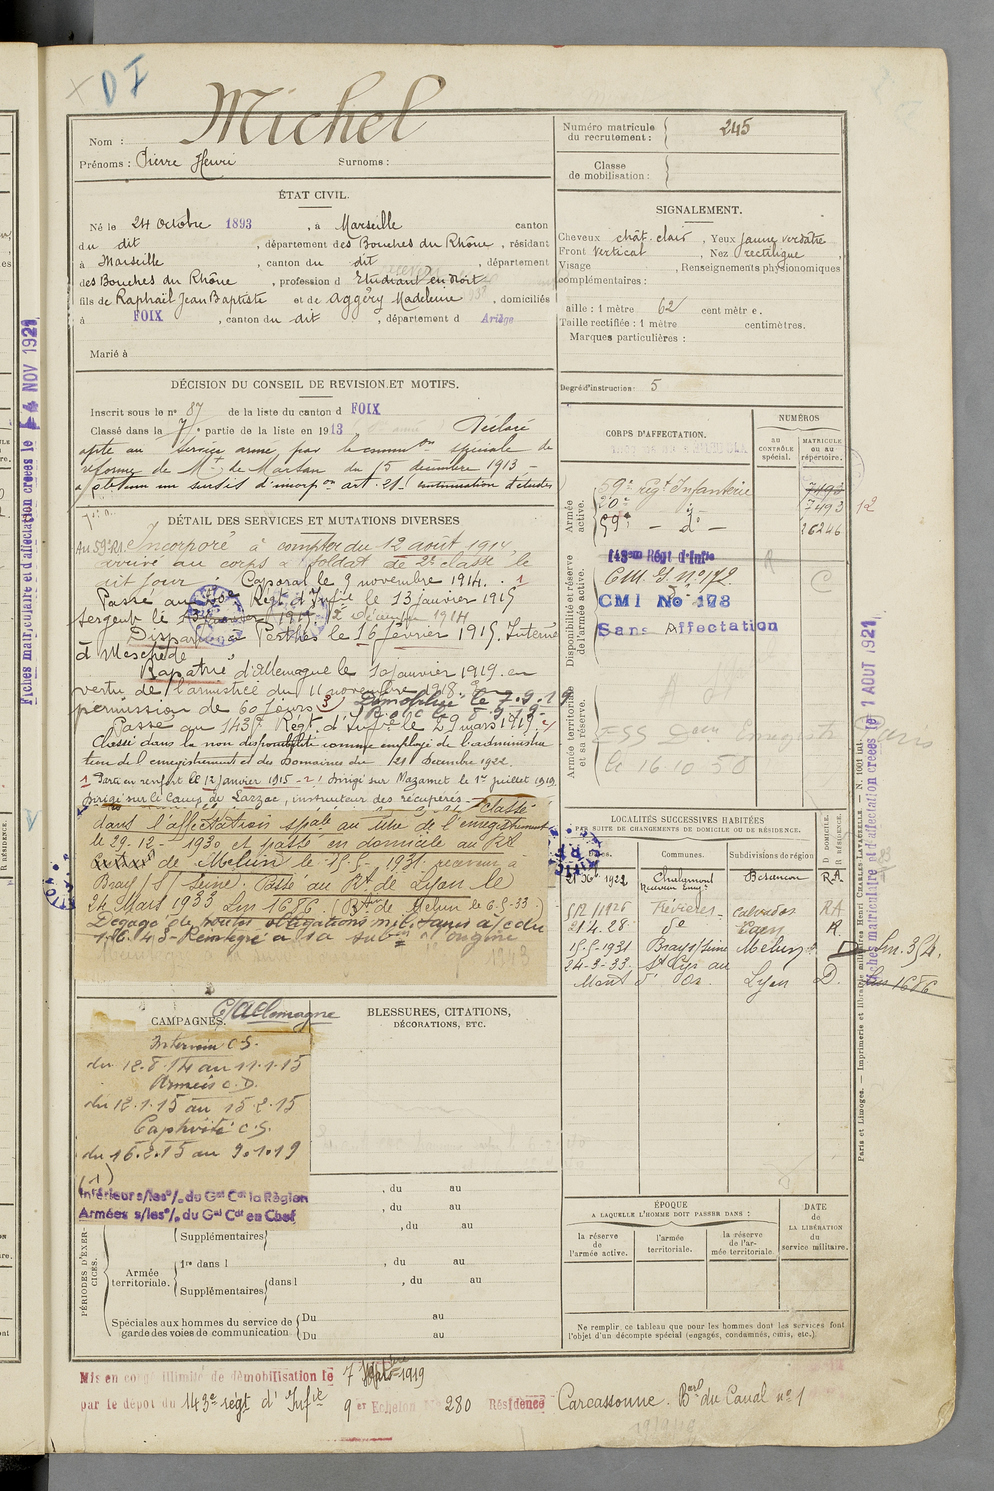 D I
Michel
Nom :
Prénoms : Pierre Henri Surnoms :
Numéro matricule du recrutement : 245
Classe de mobilisation :
ÉTAT CIVIL.
Né le 24 Octobre 1893, à Marseille canton
du dit, département des Bouches du Rhône, résidant
à Marseille, canton du dit, département
des Bouches du Rhône, profession d Etudiant en droit
fils de Raphaël Jean Baptiste et de Aggéry Madeleine, domiciliés
à FOIX, canton du dit, département d Ariège
Marié à
SIGNALEMENT.
Cheveux chât. clair, Yeux jaune verdâtre
Front vertical, Nez rectiligne
Visage , Renseignements physionomiques
complémentaires :
Taille : 1 mètre 62 centimètre.
Taille rectifiée : 1 mètre centimètres.
Marques particulières :
Degré d'instruction : 5
DÉCISION DU CONSEIL DE REVISION ET MOTIFS.
Inscrit sous le n° 87 de la liste du canton d FOIX
Classé dans la 7e partie de la liste en 1913 Déclaré
apte au service armé par la comm.on spéciale de
réforme de Mt de Marsan du 15 décembre 1913 -
a obtenu un sursis d'incorp.on art. 21 continuation d'études
DÉTAIL DES SERVICES ET MUTATIONS DIVERSES
Au 59e RI. Incorporé à compter du 12 août 1914,
arrivé au corps & soldat de 2e classe le
dit jour. Caporal le 9 novembre 1914. 1
Passé au Régt d'Infie le 13 janvier 1915
Sergent le 12 Décembre 1914
Disparu à Perthes le 16 février 1915. Interné
à Meschede
Rapatrié d'Allemagne le 10 janvier 1919. en
vertu de l'armistice du 11 novembre 1918.
permission de 60 jours Démobilisé le 7.9.19
Passé au 143e Régt d'Infie le 29 mars 1919.
Classé dans la non disponibilité comme employé de l'administra
tion de l'enregistrement et des Domaines du 21 Décembre 1922.
1 Parti en renfort le 12 janvier 1915 - 2 Dirigé sur Mazamet le 1er juillet 1919
Dirigé sur le Camp du Larzac, instructeur des récupérés - Classé
dans l'affectation spale au titre de l'enregistrement
le 29.12.1930 et passé en domicile au Rt
de Melun le 15-5-1931. receveur à
Bray s/ Seine. Passé au Rt de Lyon le
24 Mars 1933 Lm 1686 (Rt de Melun le 6-5-33.)
Dégagé de toutes obligations milit.
Réintégré à la sub.on d'origine
CORPS D'AFFECTATION.
NUMÉROS
AU CONTRÔLE spécial.
MATRICULE ou au répertoire.
Armée active.
59e Régt Infanterie 7493
20e 7493 12
59e - d° - 16246
Disponibilité et réserve de l'armée active.
143em Régt d'Infie
CM. I. n° 172
CMI No 173
Sans Affectation
Armée territoriale et sa réserve.
le 16-10-50
LOCALITÉS SUCCESSIVES HABITÉES
PAR SUITE DE CHANGEMENTS DE DOMICILE OU DE RÉSIDENCE.
Communes. Subdivisions de région D. DOMICILE. R. RÉSIDENCE.
1922 Chaumont Besançon RA
1925 Calvados RA
21.4.28. d° Caen R.
15-5-1931 Bray s/Seine Melun D Lm. 354.
24-3-33. St Cyr au
Mont d'Or. Lyon D. Lm 1686
CAMPAGNES. C/ Allemagne
Intérieur C.S.
du 12.8.14 au 11.1.15
Armées C.D.
du 12.1.15 au 15.2.15
Captivité C.S.
du 16.2.15 au 9.1.19
(1)
Intérieur s/les o/ du Gal Cdt la Région
Armées s/les o/ du Gal Cdt en Chef
BLESSURES, CITATIONS,
DÉCORATIONS, ETC.
PÉRIODES D'EXERCICES.
, du au
, du au
Supplémentaires , du au
Armée territoriale. 1re dans l , du au
Supplémentaires dans l , du au
Spéciales aux hommes du service de garde des voies de communication Du au
Du au
ÉPOQUE
A LAQUELLE L'HOMME DOIT PASSER DANS :
la réserve de l'armée active.
l'armée territoriale.
la réserve de l'armée territoriale.
DATE DE LA LIBÉRATION du service militaire.
Ne remplir ce tableau que pour les hommes dont les services font
l'objet d'un décompte spécial (engagés, condamnés, omis, etc.)
Mis en congé illimité de démobilisation le 7 Septbre 1919
par le dépôt du 143e régt d'Infie 9er Echelon No 280 Résidence Carcassonne. Bard du Canal n° 1
Fiches matriculaire et d'affectation créées le 4 NOV 1921
Fiches matriculaire et d'affectation créées le 1 AOUT 1921
Paris et Limoges. — Imprimerie et librairie militaires Henri CHARLES-LAVAUZELLE. — N. 1001 int.